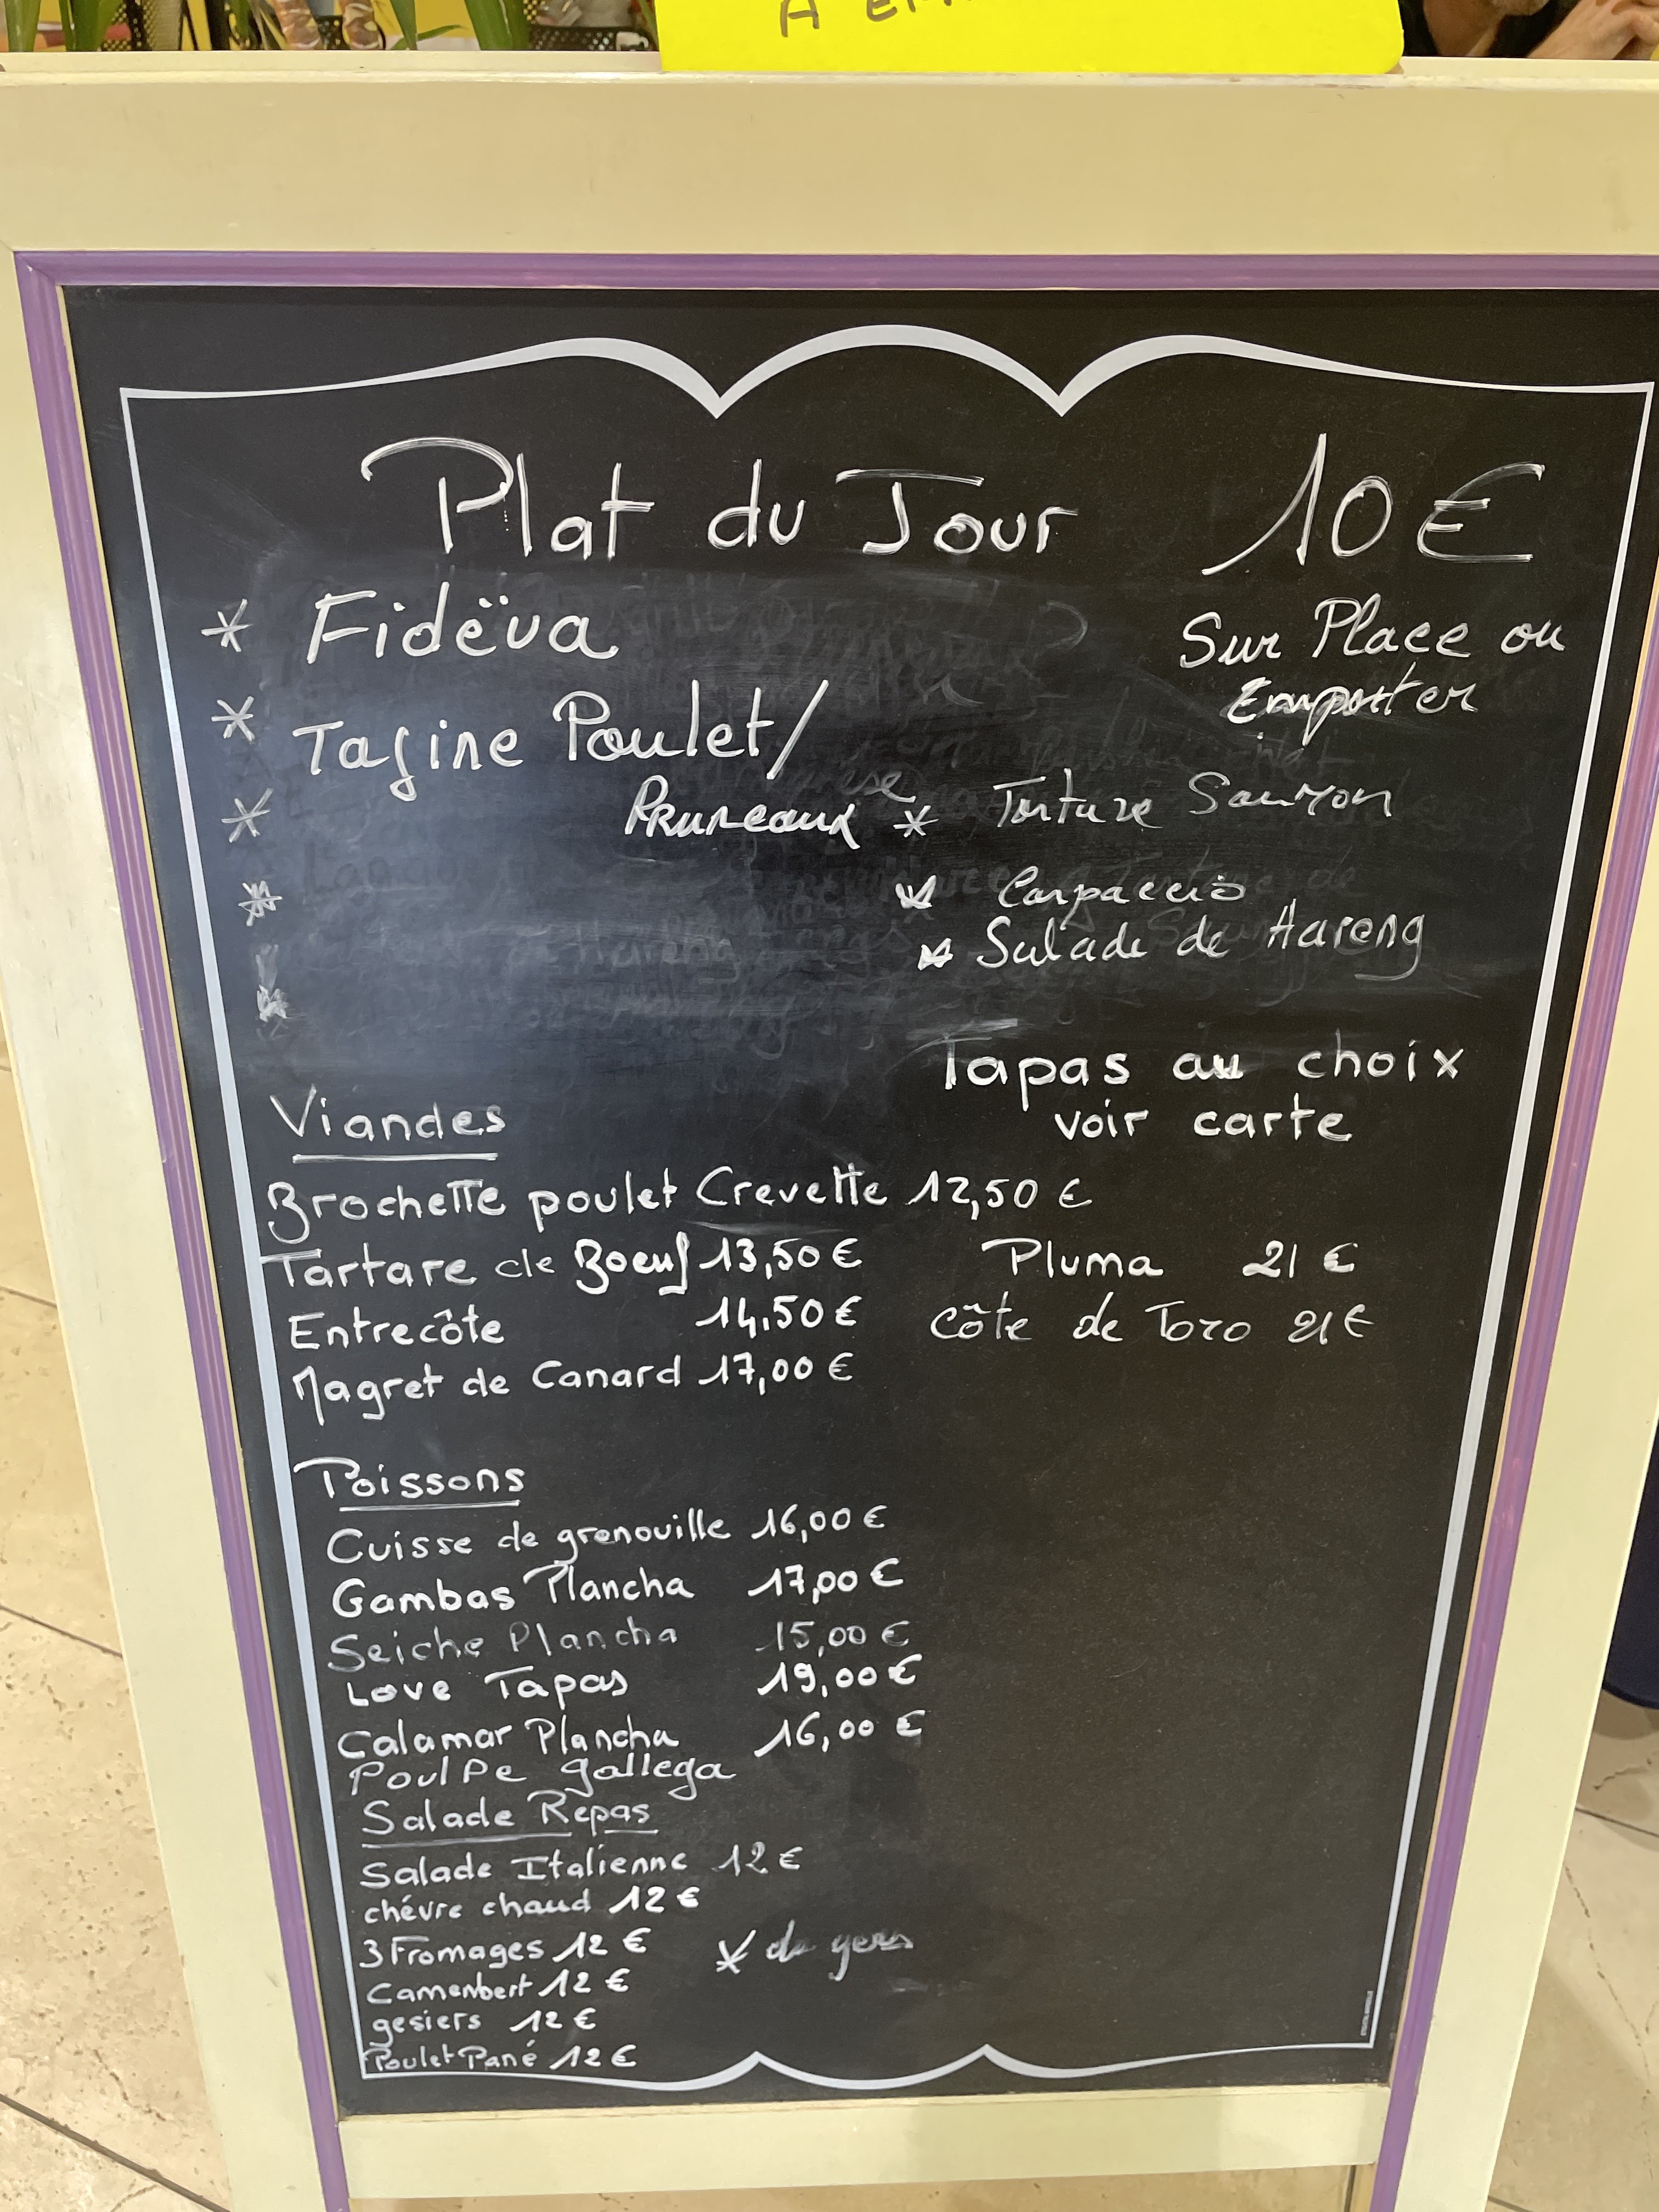 Plat du Jour 10€
* Fidëua
Sur Place ou
Emporter
* Tagine Poulet/
Pruneaux
* Tartare Saumon
*
* Carpaccio
* Salade de Hareng
*
*
Tapas au choix
voir carte
Viandes
Brochette poulet Crevette 12,50 €
Tartare de Boeuf 13,50 €
Pluma 21 €
Entrecôte 14,50 €
Côte de Toro 21€
Magret de Canard 17,00 €
Poissons
Cuisse de grenouille 16,00 €
Gambas Plancha 17,00 €
Seiche Plancha 15,00 €
Love Tapas 19,00 €
Calamar Plancha 16,00 €
Poulpe gallega
Salade Repas
Salade Italienne 12 €
chévre chaud 12 €
3 Fromages 12 €
Camenbert 12 €
gesiers 12 €
Poulet Pané 12 €